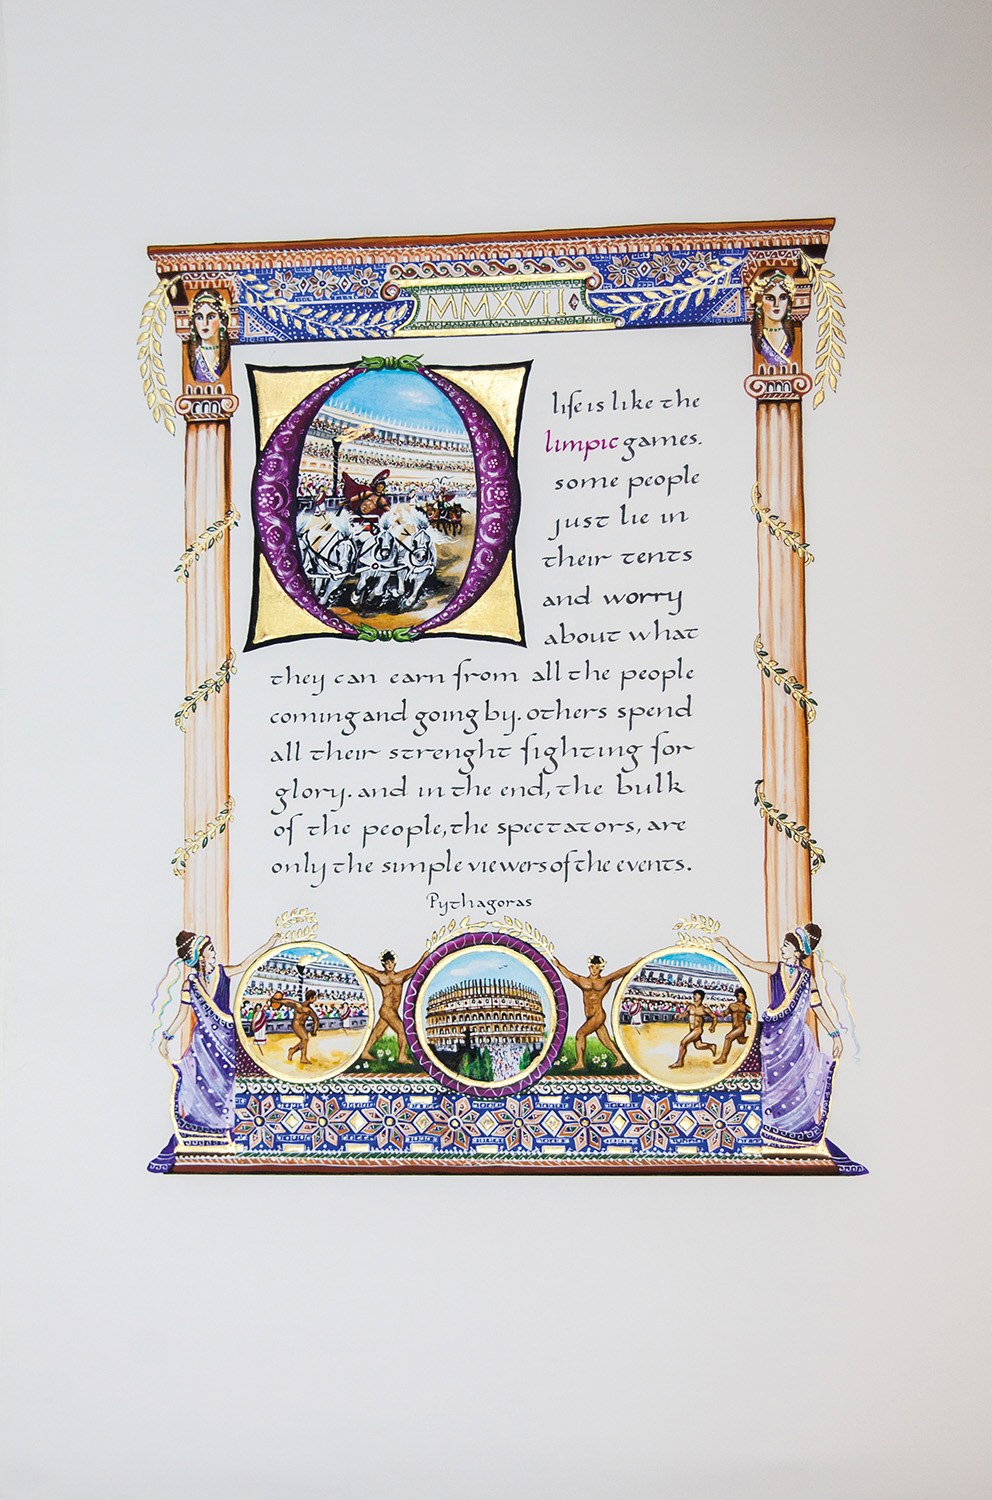 MMXVII
O
life is like the
limpic games.
some people
just lie in
their tents
and worry
about what
they can earn from all the people
coming and going by. others spend
all their strenght fighting for
glory. and in the end, the bulk
of the people, the spectators, are
only the simple viewers of the events.
Pythagoras